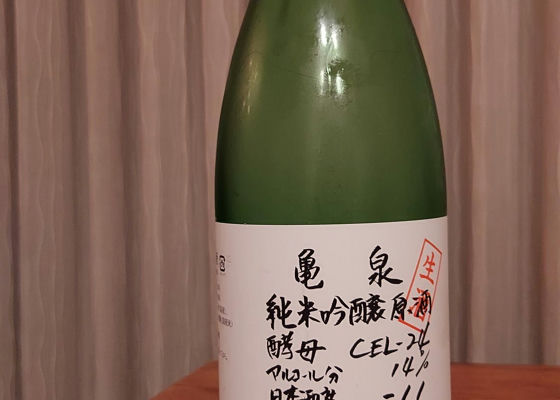 亀泉
生酒
純米吟醸原酒
酵母 CEL-24
アルコール分 14%
日本酒度 -11